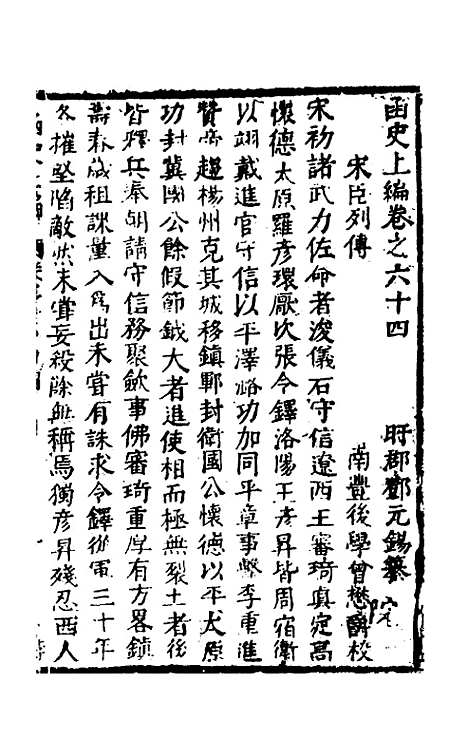 函史上編卷之六十四 盱郡鄧元錫纂
宋臣列傳 南豐後學曾懋爵校
宋初諸武力佐命者浚儀石守信遼西王審琦真定高
懷德太原羅彥環厭次張令鐸洛陽王彥昇皆周宿衛
以翊戴進官守信以平澤潞功加同平章事擊李重進
贊帝趨楊州克其城移鎮鄆封衛國公懷德以平太原
功封冀國公餘假節鉞大者進使相而極無裂土者後
皆釋兵奉朝請守信務聚斂事佛審琦重厚有方畧鎮
壽春歲租課量入為出未嘗有誅求令鐸從軍三十年
多摧堅陷敵然未嘗妄殺餘無稱焉獨彥昇殘忍西人